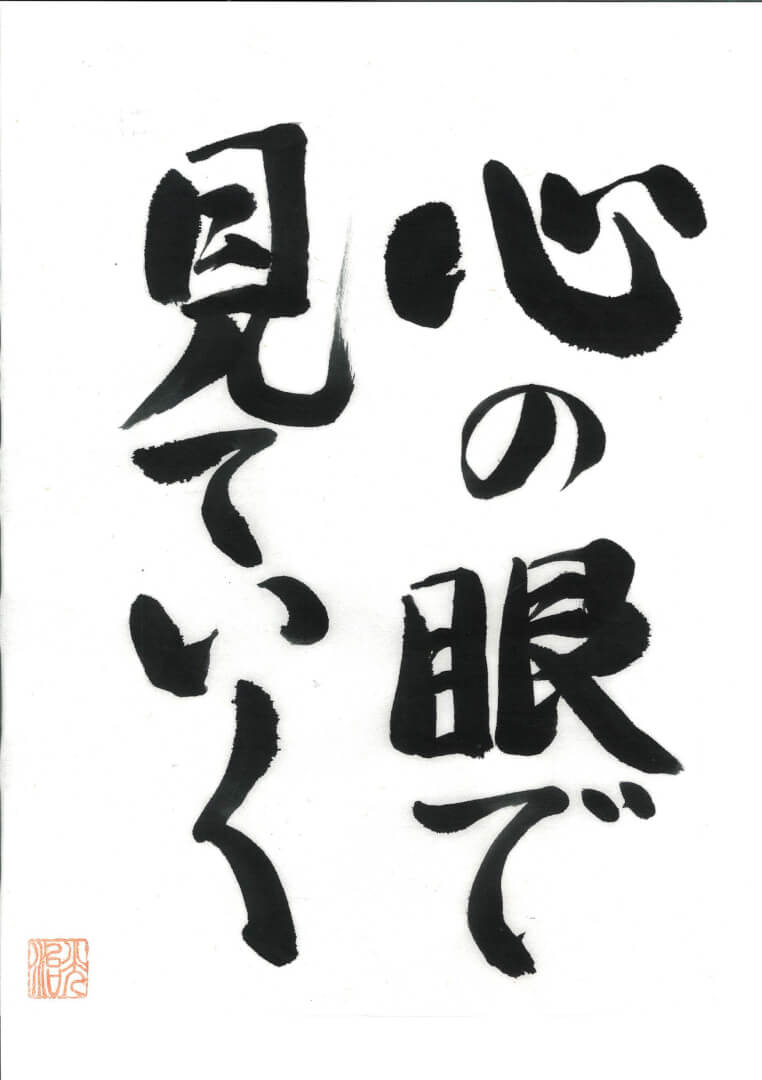 心の眼で
見ていく